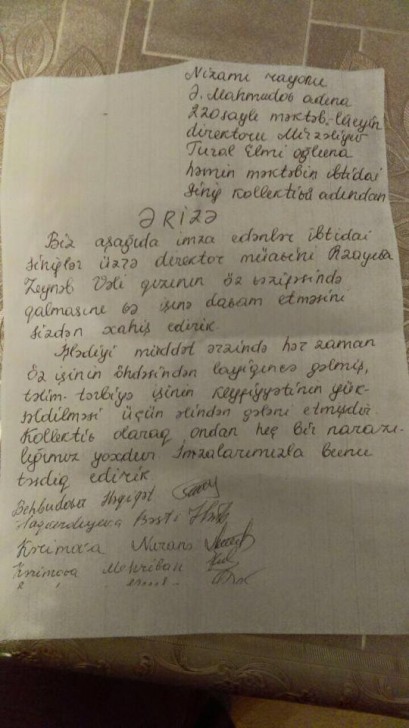 Nizami rayonu
Ə. Mahmudov adına
220 saylı məktəb-liseyin
direktoru Mirzəliyev
Tural Elmi oğluna
həmin məktəbin ibtidai
sinif kollektivi adından
ƏRİZƏ
Biz aşağıda imza edənlər ibtidai
siniflər üzrə direktor müavini Rzayeva
Zeynəb Vəli qızının öz vəzifəsində
qalmasını və işinə davam etməsini
sizdən xahiş edirik.
İşlədiyi müddət ərzində hər zaman
öz işinin öhdəsindən layiqincə gəlmiş,
təlim-tərbiyə işinin keyfiyyətinin yük-
səldilməsi üçün əlindən gələni etmişdir.
Kollektiv olaraq ondan heç bir narazı-
lığımız yoxdur. İmzalarımızla bunu
təsdiq edirik
Behbudova Həqiqət
Bəsti
Kərimova
Kərimova Mehriban